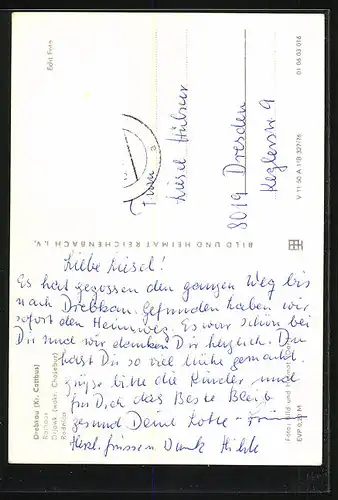 Echt Foto
01 06 03 016
V 11 50 A 1/B 327/76
BILD UND HEIMAT REICHENBACH i. V.
Frau
Liesel Hübner
8019 Dresden
Drebkau (Kr. Cottbus)
Rathaus
Drjowk (wokr. Chośebuz)
Radnica
EVP 0,20 M
Liebe Liesel!
Es hat gegossen den ganzen Weg bis
nach Drebkau. Gefunden haben wir
sofort den Heimweg. Es war schön bei
Dir und wir danken Dir herzlich. Du
hast Dir so viel Mühe gemacht.
grüße bitte die Kinder und
für Dich das Beste Bleib
gesund Deine Lotte
Herzl.